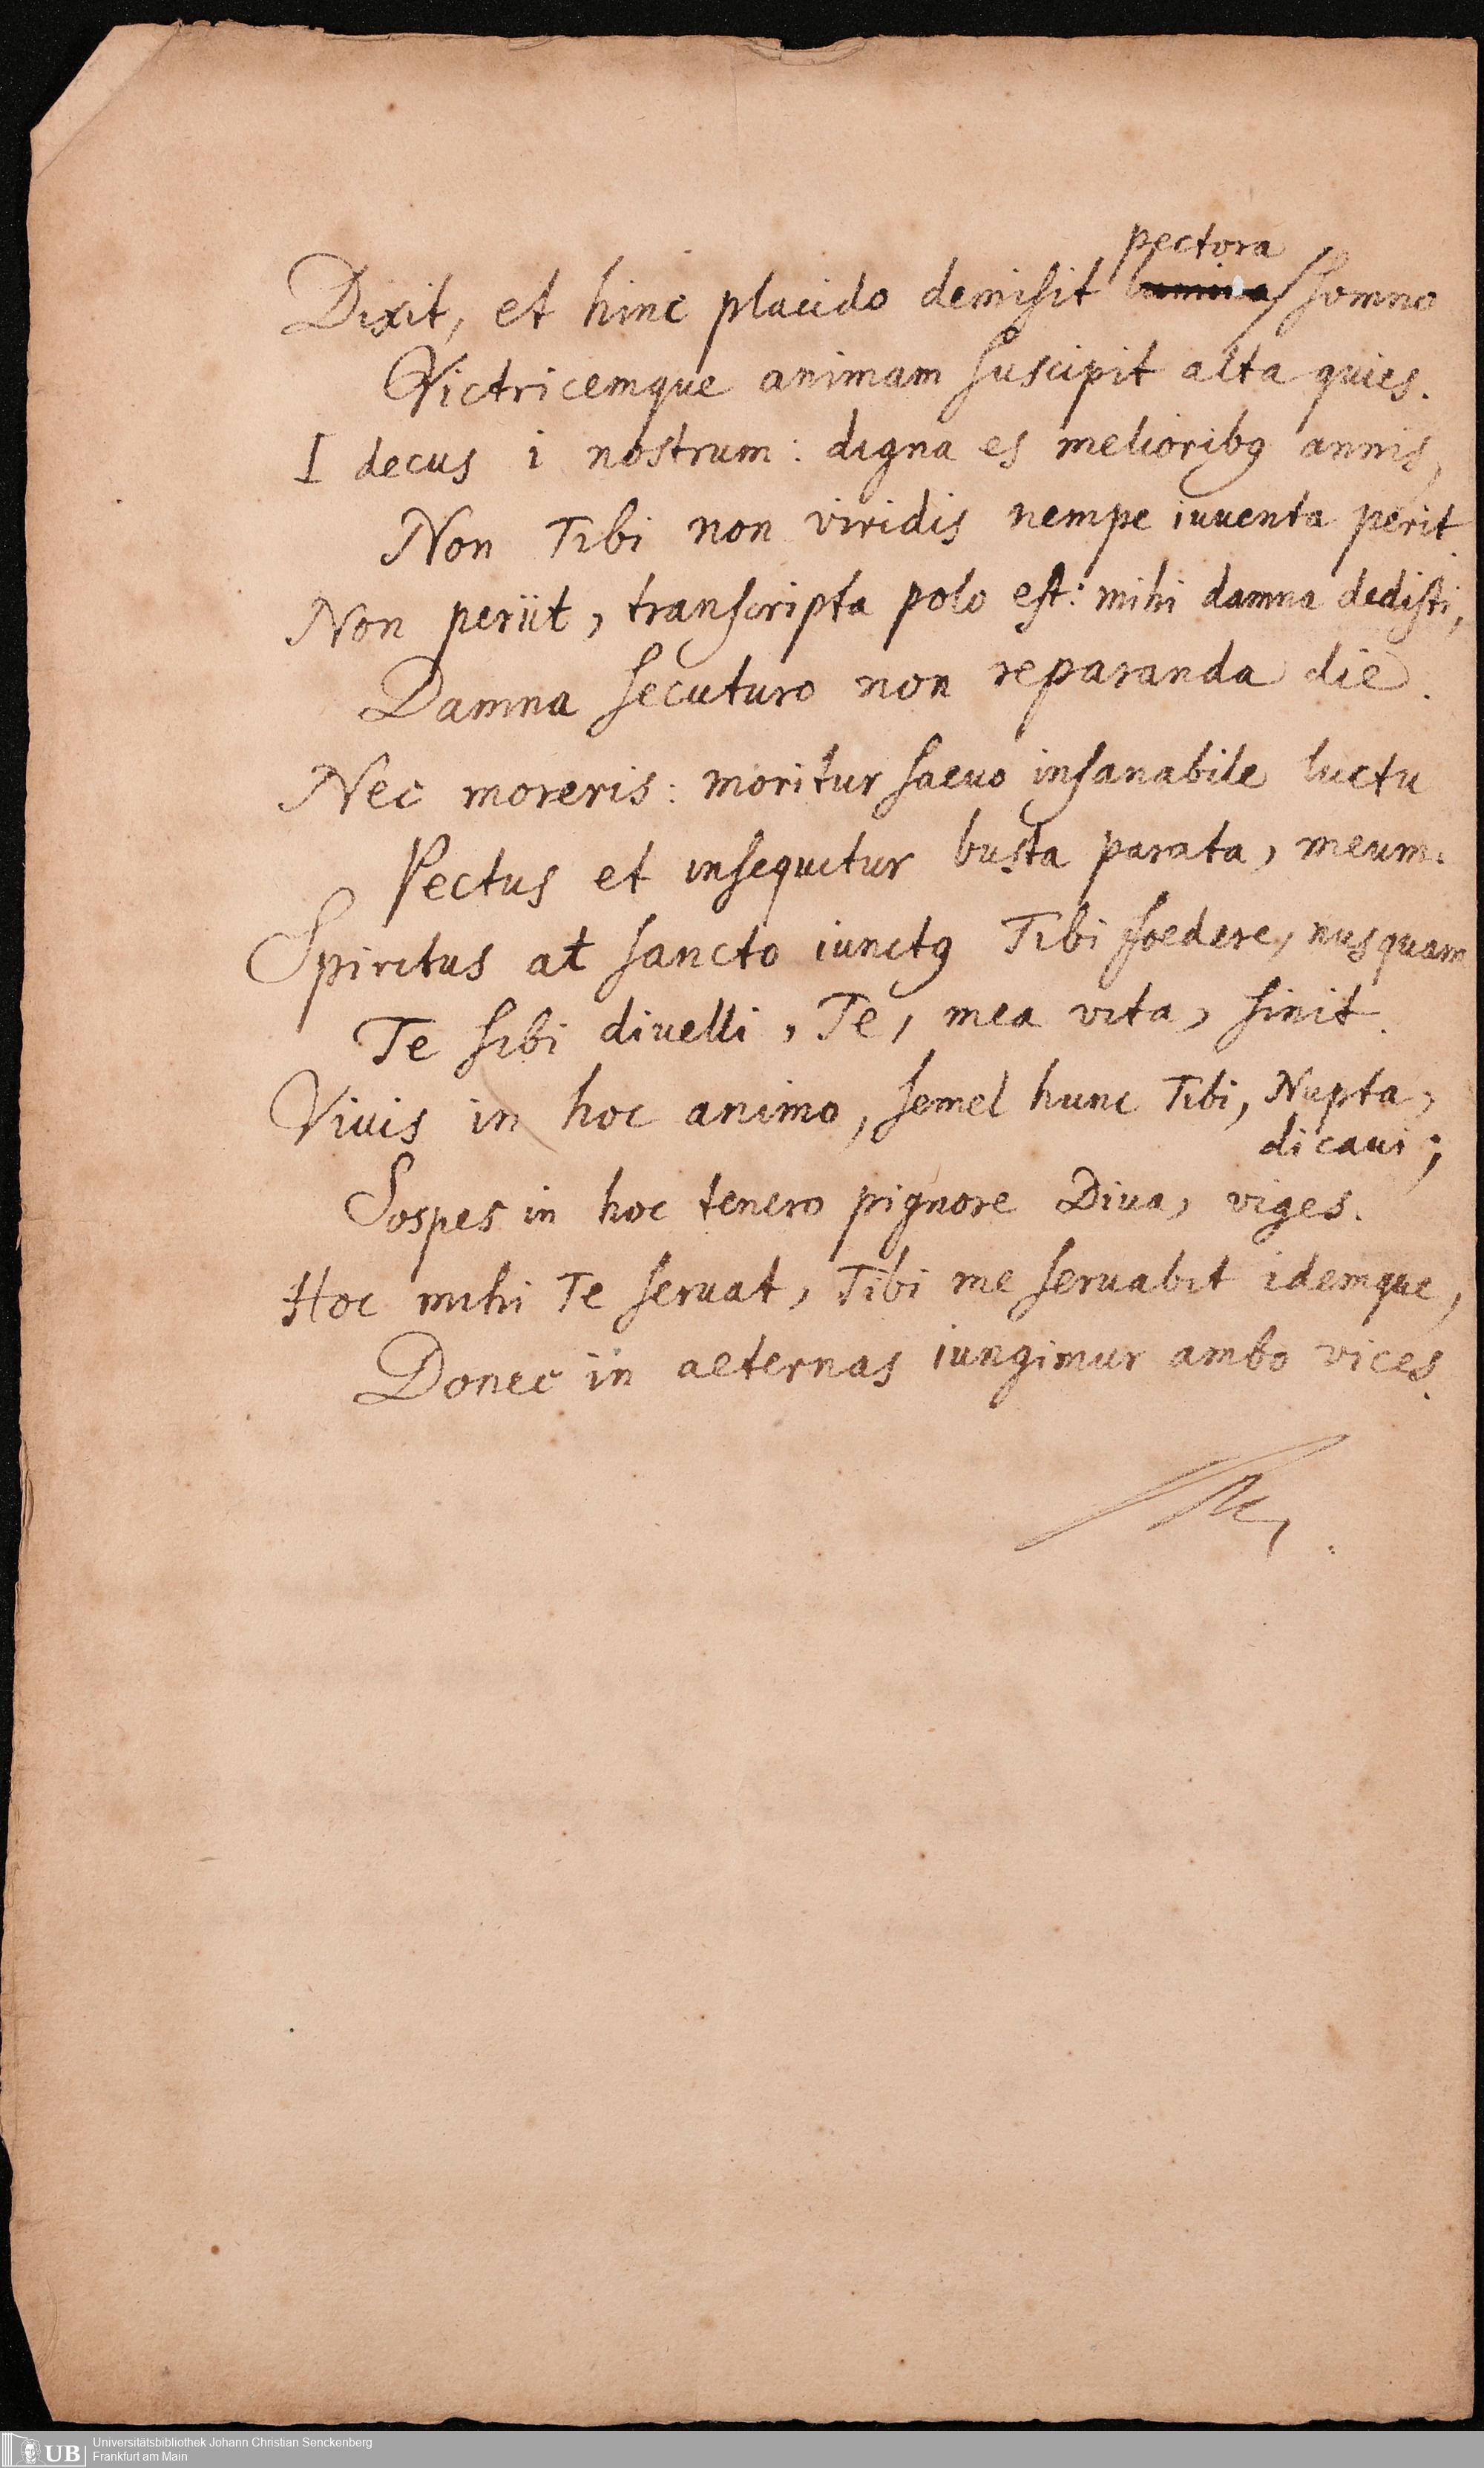 pectora
Dixit, et hinc placido demisit lumina somno
Victricemque animam suscipit alta quies.
I decus i nostrum: digna es melioribꝰ annis,
Non Tibi non viridis nempe iuuenta perit.
Non periit, transcripta polo est: mihi damna dedisti,
Damna secuturo non reparanda die.
Nec moreris: moritur saeuo insanabile luctu
Pectus et insequitur busta parata, meum.
Spiritus at sancto iunctꝰ Tibi foedere, nusquam
Te sibi diuelli, Te, mea vita, sinit.
Viuis in hoc animo, semel hunc Tibi, Nupta,
dicaui;
Sospes in hoc tenero pignore Diua, viges.
Hoc mihi Te seruat, Tibi me seruabit idemque,
Donec in aeternas iungimur ambo vices.
UB Universitätsbibliothek Johann Christian Senckenberg
Frankfurt am Main